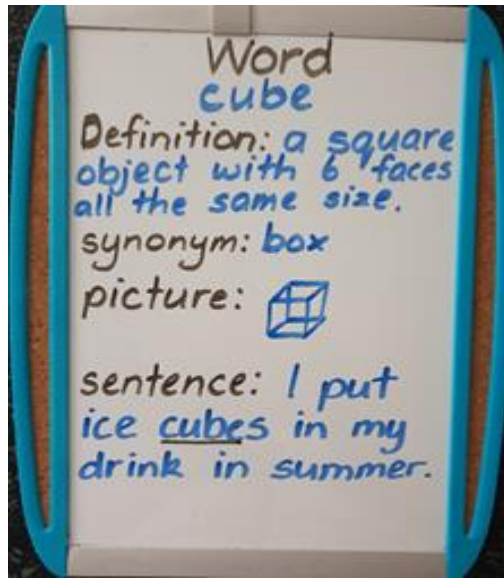 Word
cube
Definition: a square
object with 6 faces
all the same size.
synonym: box
picture:
sentence: I put
ice cubes in my
drink in summer.